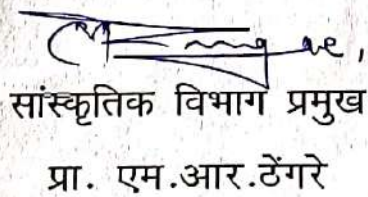 सांस्कृतिक विभाग प्रमुख
प्रा. एम.आर.ठेंगरे